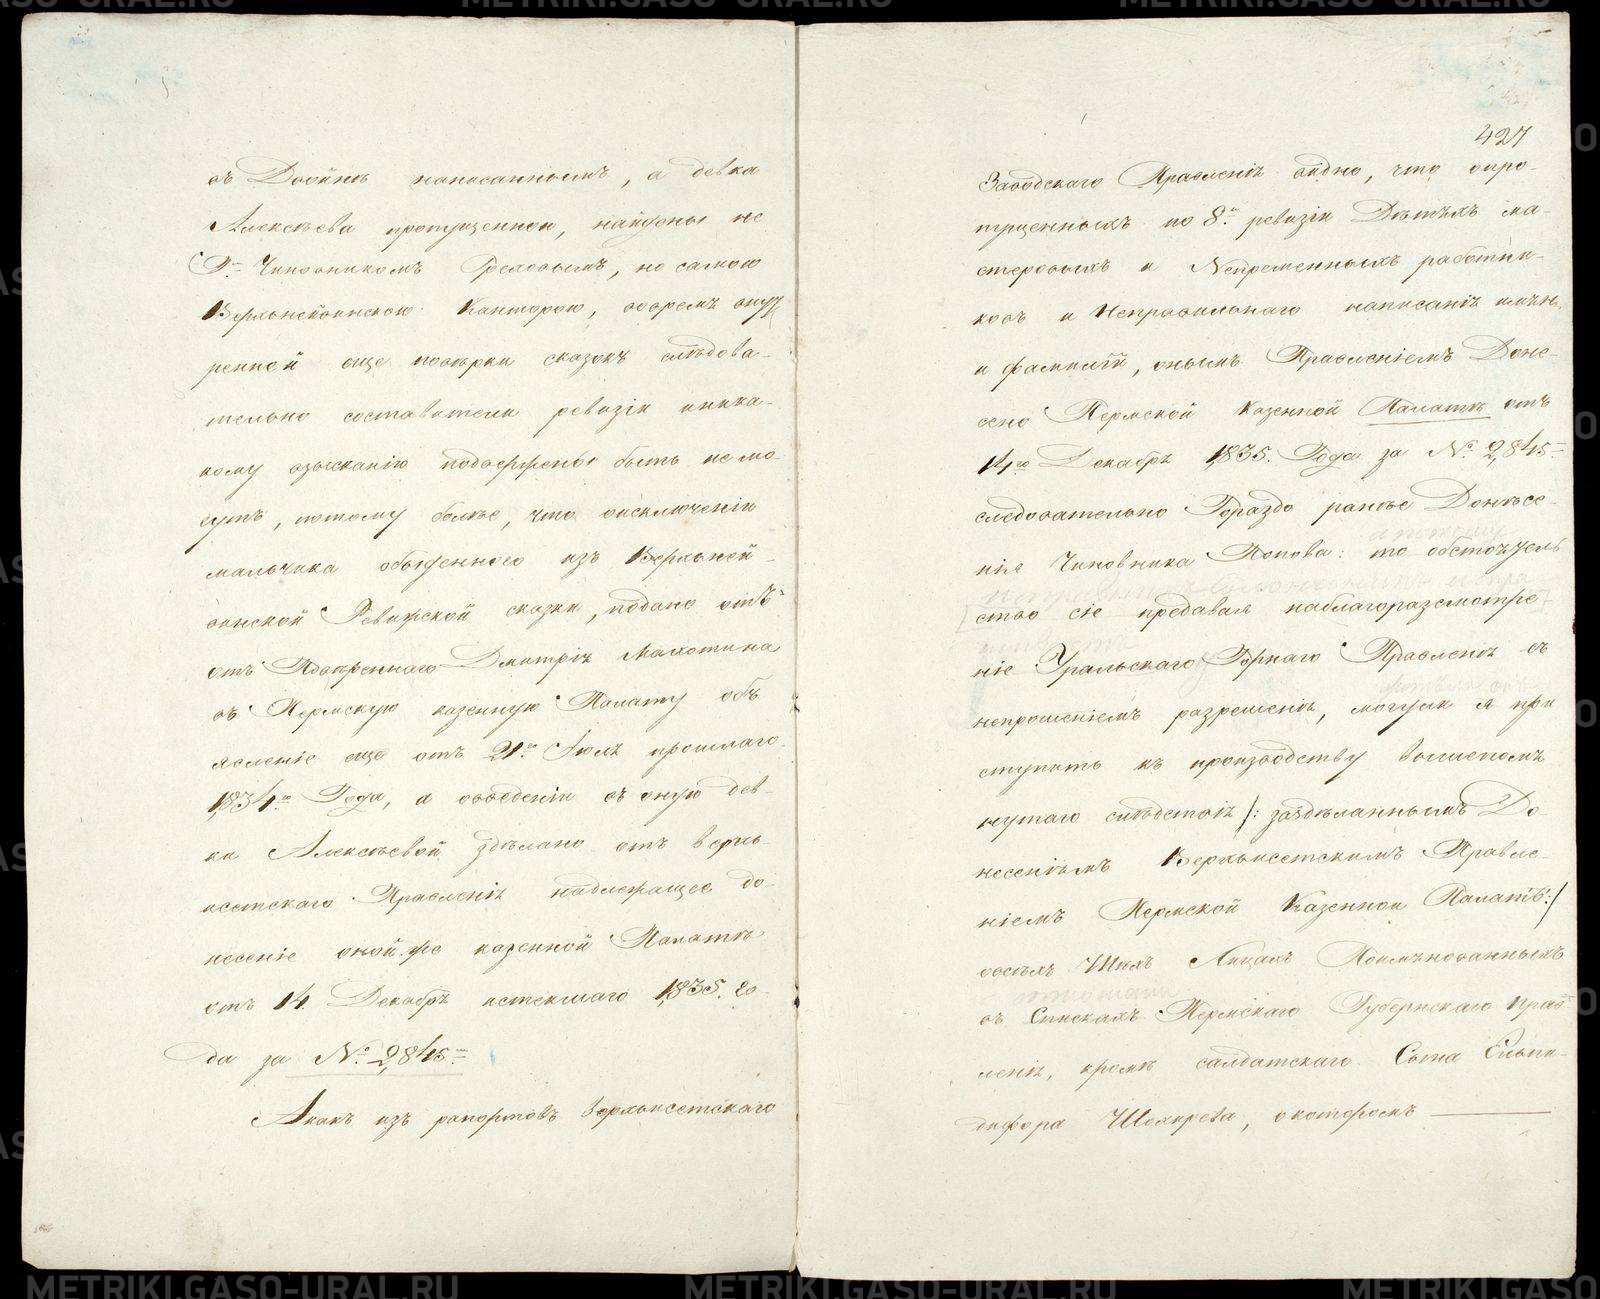 въ Двойне написаннымъ, а девка
Алексѣева пропущенною, найдены не
Гм. Чиновникомъ Греховымъ, но самою
Верхънейвинскою Канторою, во время внут
ренней еще повѣрки сказокъ слѣдова-
тельно составители ревизiи ника-
кому взысканiю подвержены быть не мо-
гутъ, потому болѣе, что о исключенiи
мальчика объявленного изъ Верхъней-
винской Ревижской сказки, подано
отъ Повѣреннаго Дмитрiя Махотина
въ Пермскую казенную Палату объ
явленiе еще отъ 21го Iюля прошлаго
1834го Года, а о введенiи въ оную дев-
ки Алексѣевой здѣлано отъ верхъ
исетскаго Правленiя надлежащее до-
несенiе оной же казенной Палатѣ
отъ 14. Декабря истекшаго 1835. го-
да за №. 2,845м
Акакъ изъ рапортовъ Верхъисетскаго
427
Заводскаго Правленiя видно, что о про-
пущенныхъ по 8й ревизiи Дѣтяхъ ма-
стеровыхъ и Непременныхъ работни-
ковъ и Неправильнаго написанiя имѣнъ
и фамилiй, онымъ Правленiемъ Доне-
сено Пермской Казенной Палатѣ отъ
14го Декабря 1835. Года за №. 2,845м
следовательно Гораздо ранѣе Донѣсе-
нiя Чиновника Попова: то обстоятель
ство сiе предавая на благоразсмотре-
нiе Уральскаго Горнаго Правленiя съ
непрошенiемъ разрешенiя, могули я при
ступить къ произвòдству вышепомя
нутаго слѣдствiя /: за здѣланнымъ До-
несенiемъ Верхъисетскимъ Правле-
нiемъ Пермской Казенной Палатѣ :/
о всѣхъ Тѣхъ Лицахъ Поимѣнованныхъ
въ Спискахъ Пермскаго Губернскаго прав
ленiя, кромѣ салдатскаго Сына Елпи-
дифора Шохирева, о которомъ
METRIKI.GASO-URAL.RU